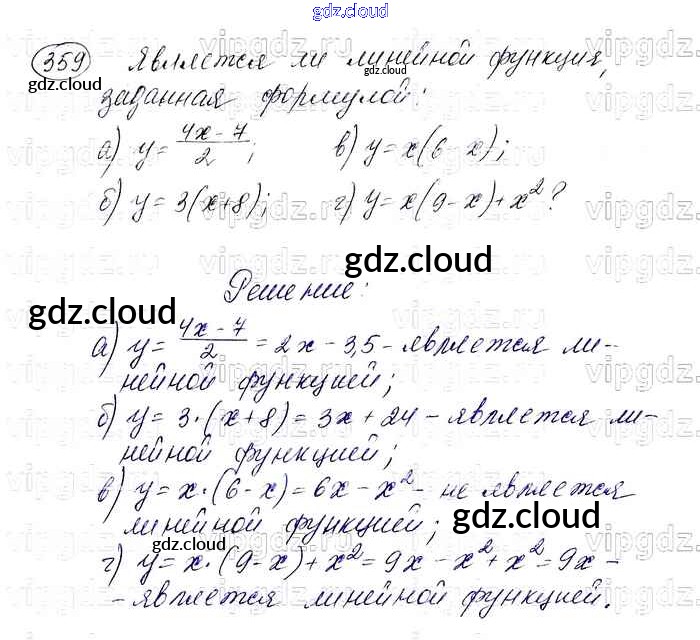 gdz.cloud
359 Является ли линейной функция,
заданная формулой:
а) y = (4x - 7)/2; в) y = x(6 - x);
б) y = 3(x+8); г) y = x(9-x) + x²?
Решение:
а) y = (4x - 7)/2 = 2x - 3,5 - является ли-
нейной функцией;
б) y = 3·(x+8) = 3x + 24 - является ли-
нейной функцией;
в) y = x·(6-x) = 6x - x² - не является
линейной функцией;
г) y = x·(9-x) + x² = 9x - x² + x² = 9x -
- является линейной функцией.
gdz.cloud
gdz.cloud
gdz.cloud
gdz.cloud
gdz.cloud
gdz.cloud
gdz.cloud
vipgdz